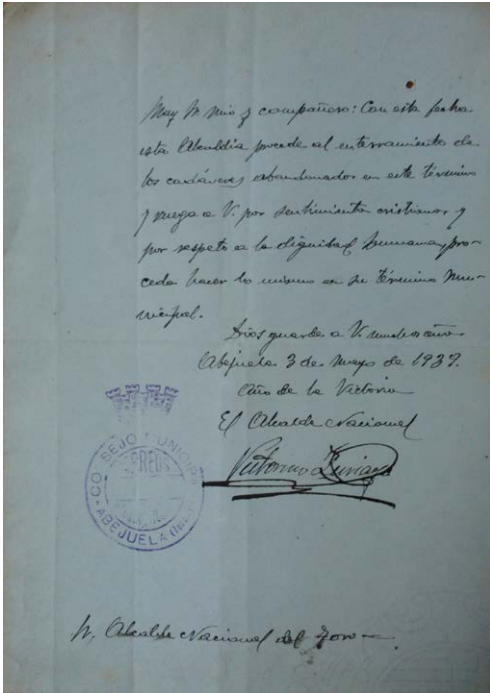 Muy Sr. mio y compañero: Con esta fecha
esta Alcaldia procede al enterramiento de
los cadáveres abandonados en este término
y ruega a V. por sentimientos cristianos y
por respeto a la dignidad humana, pro-
ceda hacer lo mismo en su término mu-
nicipal.
Dios guarde a V. muchos años
Abejuela 3 de Mayo de 1939.
Año de la Victoria
El Alcalde Nacional
Victorino
CONSEJO MUNICIPAL
CORREOS
ABEJUELA
Sr. Alcalde Nacional del Toro